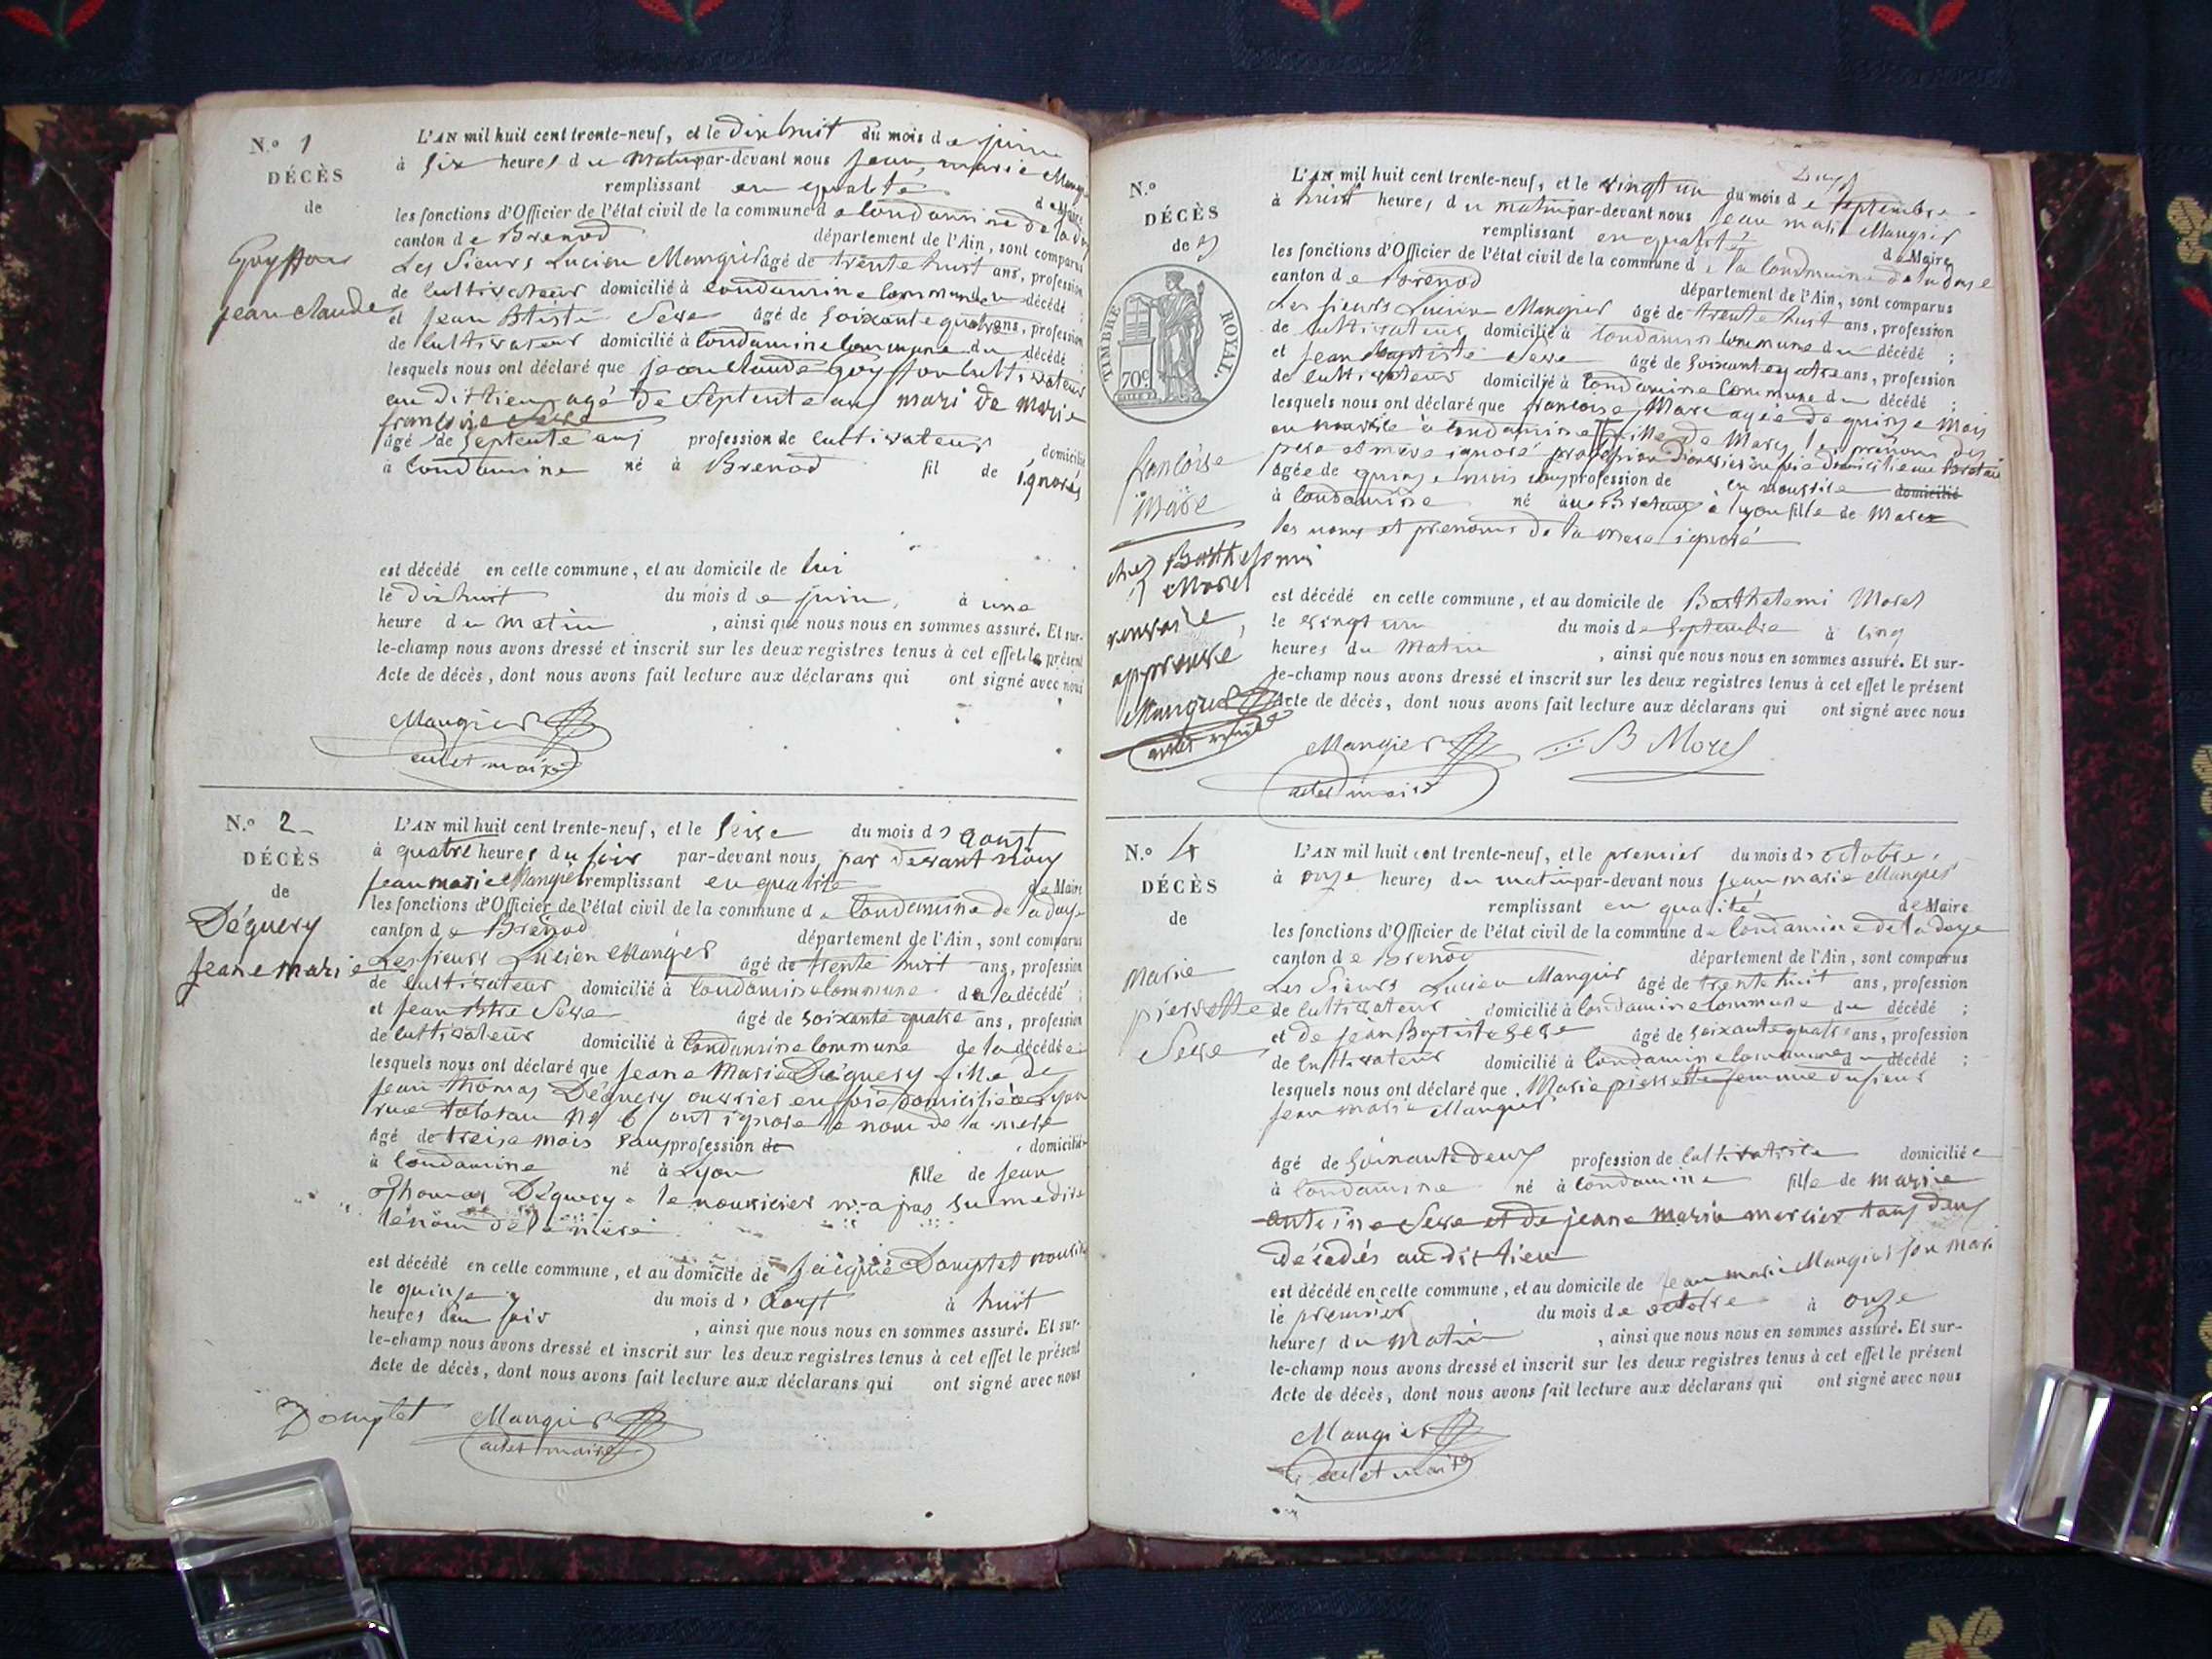 N.º 1
DÉCÈS
de
Goyffon
jean claude
L'AN mil huit cent trente-neuf, et le dix huit du mois de juin
à six heures du matin par-devant nous jean marie Mangier
remplissant en qualité de Maire
les fonctions d'Officier de l'état civil de la commune de Condamine de la doye
canton de Brenod département de l'Ain, sont comparus
Les Sieurs Lucien Mangier âgé de trente huit ans, profession
de cultivateur domicilié à Condamine commune du décédé ;
et jean Btiste Serre âgé de soixante quatre ans, profession
de cultivateur domicilié à Condamine commune du décédé ;
lesquels nous ont déclaré que jean claude Goyffon cultivateur
au dit lieu agé de septente ans mari de marie
françoise Serre
âgé de septente ans profession de cultivateur domicilié
à Condamine né à Brenod fil de ignorés
est décédé en celle commune, et au domicile de lui
le dix huit du mois de juin, à une
heure du matin, ainsi que nous nous en sommes assuré. Et sur-
le-champ nous avons dressé et inscrit sur les deux registres tenus à cet effet le présent
Acte de décès, dont nous avons fait lecture aux déclarans qui ont signé avec nous
Mangier
adet maire
N.º 2
DÉCÈS
de
Déguery
jeane marie
L'AN mil huit cent trente-neuf, et le seise du mois d'aoust
à quatre heures du soir par-devant nous par devant nous
jean marie Mangier remplissant en qualité de Maire
les fonctions d'Officier de l'état civil de la commune de Condamine de la doye
canton de Brenod département de l'Ain, sont comparus
Les sieurs Lucien Mangier âgé de trente huit ans, profession
de cultivateur domicilié à Condamine commune de la décédé ;
et jean Btte Serre âgé de soixante quatre ans, profession
de cultivateur domicilié à Condamine commune de la décédée ;
lesquels nous ont déclaré que jeane Marie Déguery fille de
jean thomas Déguery ouvrier en soie domicilié à Lyon
rue tolosan nº 6 ont ignoré le nom de la mere
âgé de treise mois sans profession de domicilié
à Condamine né à Lyon fille de jean
Thomas Déguery le nouricier n'a pas su me dire
le nom de la mere
est décédé en celle commune, et au domicile de Domptet
le quinse du mois d'Aoust à huit
heures du soir, ainsi que nous nous en sommes assuré. Et sur-
le-champ nous avons dressé et inscrit sur les deux registres tenus à cet effet le présent
Acte de décès, dont nous avons fait lecture aux déclarans qui ont signé avec nous
Domptet Mangier
adet maire
N.º
DÉCÈS
de
TIMBRE ROYAL.
70c
françoise
Mare
chez Barthelemi
Morel
renvoi
approuvé
Mangier
L'AN mil huit cent trente-neuf, et le vingt un du mois de septembre
à huit heures du matin par-devant nous jean marie Mangier
remplissant en qualité de Maire
les fonctions d'Officier de l'état civil de la commune de la Condamine de la doye
canton de brenod département de l'Ain, sont comparus
Les sieurs Lucien Mangier âgé de trente huit ans, profession
de cultivateur domicilié à Condamine commune du décédé ;
et jean baptiste Serre âgé de soixante quatre ans, profession
de cultivateur domicilié à Condamine Commune du décédé ;
lesquels nous ont déclaré que françoise Mare agée de quinse Mois
en nourise à Condamine fille de Mare, les prénoms des
pere et mère ignoré profession d'ouvrier en soie domicilié au
âgée de quinse mois sans profession de en nourrise domicilié
à Condamine né à Lyon fille de Mare
les noms et prenoms de la mere ignoré
est décédé en celle commune, et au domicile de Barthelemi Morel
le vingt un du mois de septembre à cinq
heures du Matin, ainsi que nous nous en sommes assuré. Et sur-
le-champ nous avons dressé et inscrit sur les deux registres tenus à cet effet le présent
Acte de décès, dont nous avons fait lecture aux déclarans qui ont signé avec nous
Mangier B Morel
adet maire
N.º 4
DÉCÈS
de
Marie
pierrette
Serre
L'AN mil huit cent trente-neuf, et le premier du mois d'octobre
à onze heures du matin par-devant nous jean marie Mangier
remplissant en qualité de Maire
les fonctions d'Officier de l'état civil de la commune de Condamine de la doye
canton de brenod département de l'Ain, sont comparus
Les Sieurs Lucien Mangier âgé de trente huit ans, profession
de cultivateur domicilié à Condamine commune du décédé ;
et de jean Baptiste Serre âgé de soixante quatre ans, profession
de cultivateur domicilié à Condamine commune du décédé ;
lesquels nous ont déclaré que Marie pierrette femme du sieur
jean marie Mangier
âgé de soixante deux profession de cultivatrice domiciliée
à Condamine né à Condamine fille de marie
antoine Serre et de jeane marie mercier tous deux
décédés au dit lieu
est décédé en celle commune, et au domicile de jean marie Mangier son mari
le premier du mois de octobre à onze
heures du Matin, ainsi que nous nous en sommes assuré. Et sur-
le-champ nous avons dressé et inscrit sur les deux registres tenus à cet effet le présent
Acte de décès, dont nous avons fait lecture aux déclarans qui ont signé avec nous
Mangier
adet maire